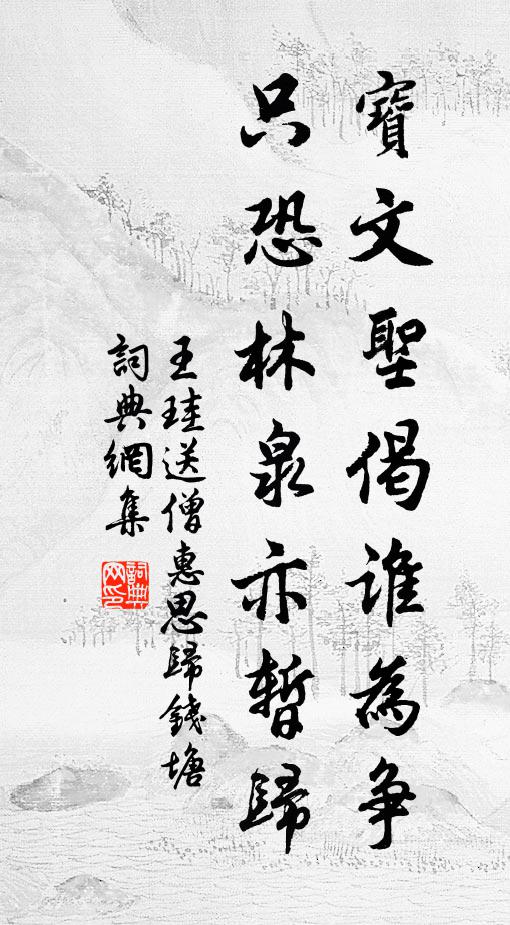 寶文聖偈誰為爭
只恐林泉亦暫歸
王珪送僧惠思歸錢塘
詞典網集
詞典網印